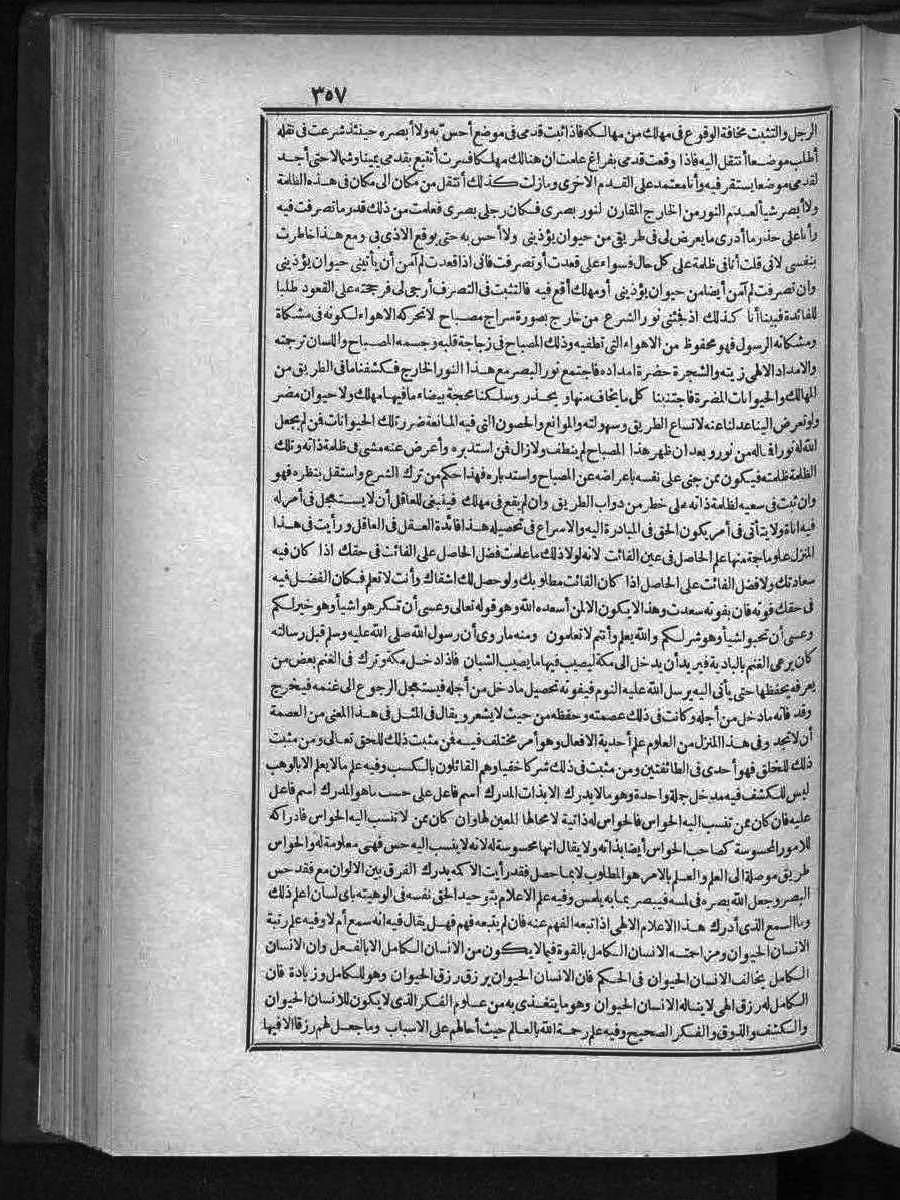 ٣٥٧
الرجل والتثبت مخافة الوقوع فى مهلك من مهالكه فاذا ثبت قدمى فى موضع أحس به ولا أبصره حينئذ شرعت فى نقله
أطلب موضعا أنتقل اليه فاذا وقعت قدمى بفراغ علمت ان هنالك مهلكا فسرت أتتبع بقدمى يمينا وشمالا حتى أجد
لقدمى موضعا يستقر فيه وأنا معتمد على القدم الاخرى ومازلت كذلك أنتقل من مكان الى مكان فى هذه الظلمة
ولا أبصر شيأ لعدم النور من الخارج المقارن لنور بصرى فكان رجلى بصرى فعلمت من ذلك قدر ما تصرفت فيه
وأنا على حذر ما أدرى ما يعرض لى فى طريقى من حيوان يؤذينى ولا أحس به حتى يوقع الاذى بى ومع هذا خاطرت
بنفسى لانى قلت أنا فى ظلمة على كل حال فسواء على قعدت أو تصرفت فانى اذا قعدت لم آمن أن يأتينى حيوان يؤذينى
وان تصرفت لم آمن أيضا من حيوان يؤذينى أو مهلك أقع فيه فالتثبت فى التصرف أرجى لى فرجحته على القعود طلبا
للفائدة فبينا أنا كذلك اذ فجئنى نور الشرع من خارج بصورة سراج مصباح لا تحركه الاهواء لكونه فى مشكاة
ومشكاته الرسول فهو محفوظ من الاهواء التى تطفيه وذلك المصباح فى زجاجة قلبه وجسمه المصباح واللسان ترجمته
والامداد الالهى زيته والشجرة حضرة امداده فاجتمع نور البصر مع هذا النور الخارج فكشفنا ما فى الطريق من
المهالك والحيوانات المضرة فاجتنبنا كل ما يخاف منها ويحذر وسلكنا محجة بيضاء ما فيها مهلك ولا حيوان مضر
ولو تعرض الينا عدلنا عنه لاتساع الطريق وسهولته والموانع والحصون التى فيه المانعة ضرر تلك الحيوانات فن لم يجعل
الله له نورا فاله من نور وبعد ان ظهر هذا المصباح لم ينطف ولا زال فن استدبره وأعرض عنه مشى فى ظلمة ذاته وتلك
الظلمة ظلمته فيكون ممن جنى على نفسه باعراضه عن المصباح واستدباره فهذا حكم من ترك الشرع واستقل بنظره فهو
وان ثبت فى سعيه لظلمة ذاته على خطر من دواب الطريق وان لم يقع فى مهلك فينبغى للعاقل أن لا يستعجل فى أمر له
فيه اناة ولا يتأنى فى أمر يكون الحق فى المبادرة اليه والاسراع فى تحصيله هذا فائدة العقل فى العاقل ورأيت فى هذا
المنزل علوما جمة منها علم الحاصل فى عين الفائت لانه لولا ذلك ما علمت فضل الحاصل على الفائت فى حقك اذا كان فيه
سعادتك ولا فضل الفائت على الحاصل اذا كان الفائت مطلوبك ولو حصل لك اشقاك وأنت لا تعلم فكان الفضل فيه
فى حقك فوته فان بفوته سعدت وهذا لا يكون الا لمن أسعده الله وهو قوله تعالى وعسى أن تكرهوا شيأ وهو خير لكم
وعسى أن تحبوا شيأ وهو شر لكم والله يعلم وأنتم لا تعلمون ومنه ما روى أن رسول الله صلى الله عليه وسلم قبل رسالته
كان يرعى الغنم بالبادية فيريد أن يدخل الى مكة ليصيب فيها ما يصيب الشبان فاذا دخل مكة وترك فى الغنم بعض من
يعرفه يحفظها حتى يأتى اليه يرسل الله عليه النوم فيفوته تحصيل ما دخل من أجله فيستعجل الرجوع الى غنمه فيخرج
وقد فاته ما دخل من أجله وكانت فى ذلك عصمته وحفظه من حيث لا يشعر ويقال فى المثل فى هذا المعنى من العصمة
أن لا تجد وفى هذا المنزل من العلوم علم أحدية الافعال وهو أمر مختلف فيه فن مثبت ذلك للحق تعالى ومن مثبت
ذلك للخلق فهو أحدى فى الطائفتين ومن مثبت فى ذلك شركا خفيا وهم القائلون بالكسب وفيه علم ما لا يعلم الا بالوهب
ليس للكشف فيه مدخل جملة واحدة وهو ما لا يدرك الا بذات المدرك اسم فاعل على حسب ما هو المدرك اسم فاعل
عليه فان كان ممن تنسب اليه الحواس فالحواس له ذاتية لا محالها المعين لها وان كان ممن لا تنسب اليه الحواس فادراكه
للامور المحسوسة كصاحب الحواس أيضا بذاته ولا يقال انها محسوسة له لانه لا ينسب اليه حس فهى معلومة له والحواس
طريق موصلة الى العلم والعلم بالامر هو المطلوب لا بما حصل فقد رأيت الاكمه يدرك الفرق بين الالوان مع فقد حس
البصر وجعل الله بصره فى لمسه فيبصر بما به يلمس وفيه علم الاعلام بتوحيد الحق نفسه فى الوهيته باى لسان اعلم ذلك
وما السمع الذى أدرك هذا الاعلام الالهى اذا تبعه الفهم عنه فان لم يتبعه فهم فهل يقال فيه انه سمع أم لا وفيه علم رتبة
الانسان الحيوان ومزاحمته الانسان الكامل بالقوة فيما لا يكون من الانسان الكامل الا بالفعل وان الانسان
الكامل يخالف الانسان الحيوان فى الحكم فان الانسان الحيوان يرزق رزق الحيوان وهو للكامل وزيادة فان
الكامل له رزق الهى لا يناله الانسان الحيوان وهو ما يتغذى به من علوم الفكر الذى لا يكون للانسان الحيوان
والكشف والذوق والفكر الصحيح وفيه علم رحمة الله بالعالم حيث أحالهم على الاسباب وما جعل لهم رزقا الا فيها